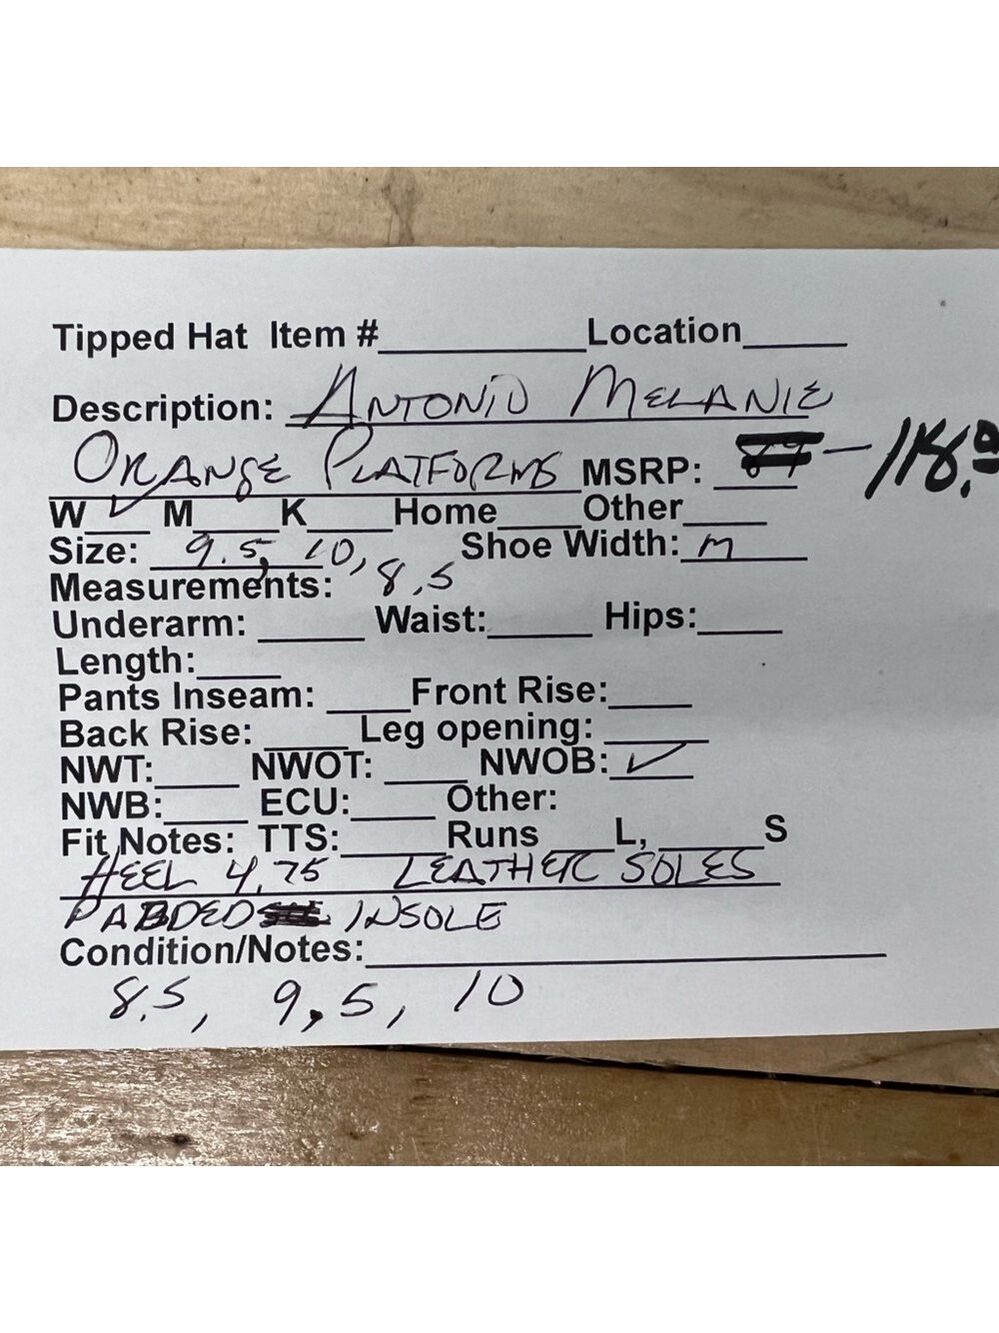 Tipped Hat Item #________ Location_____
Description: ANTONIO MELANIE
ORANGE PLATFORMS MSRP: – 118.0
W ✓ M____ K____ Home____ Other____
Size: 9.5, 10, 8.5 Shoe Width: M
Measurements:
Underarm: _____ Waist:_____ Hips:____
Length:____
Pants Inseam: ____ Front Rise:____
Back Rise: ____ Leg opening: _____
NWT:____ NWOT: ____ NWOB: ✓
NWB:____ ECU:____ Other:
Fit Notes: TTS:_____ Runs ____L, _____S
HEEL 4.75 LEATHER SOLES
PADDED INSOLE
Condition/Notes:____________________
8.5, 9,5, 10